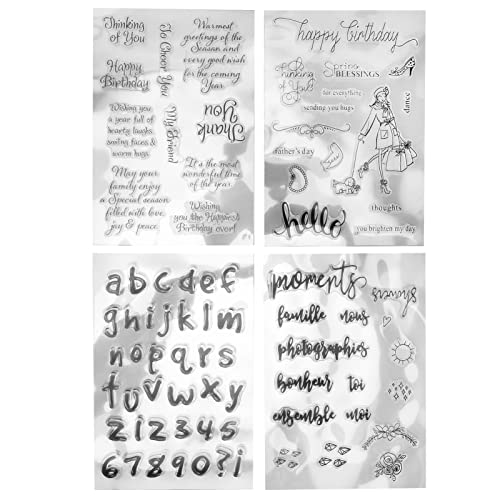 Thinking
of You
To Cheer You
Warmest
greetings of the
Season and
every good wish
for the coming
Year
Happy
Birthday
Wishing you
a year full of
hearty laughs,
smiling faces &
warm hugs
My Friend
Thank
You
May your
family enjoy
a Special season
filled with love,
joy & peace.
It's the most
wonderful time
of the year.
Wishing
you the Happiest
Birthday ever!
happy birthday
Thinking
of You
Spring
BLESSINGS
for everything
sending you hugs
dance
father's day
hello
thoughts
you brighten my day
abcdef
ghijklm
nopqrs
tuvwxy
z12345
67890?i
moments
famille nous
photographies
bonheur toi
ensemble moi